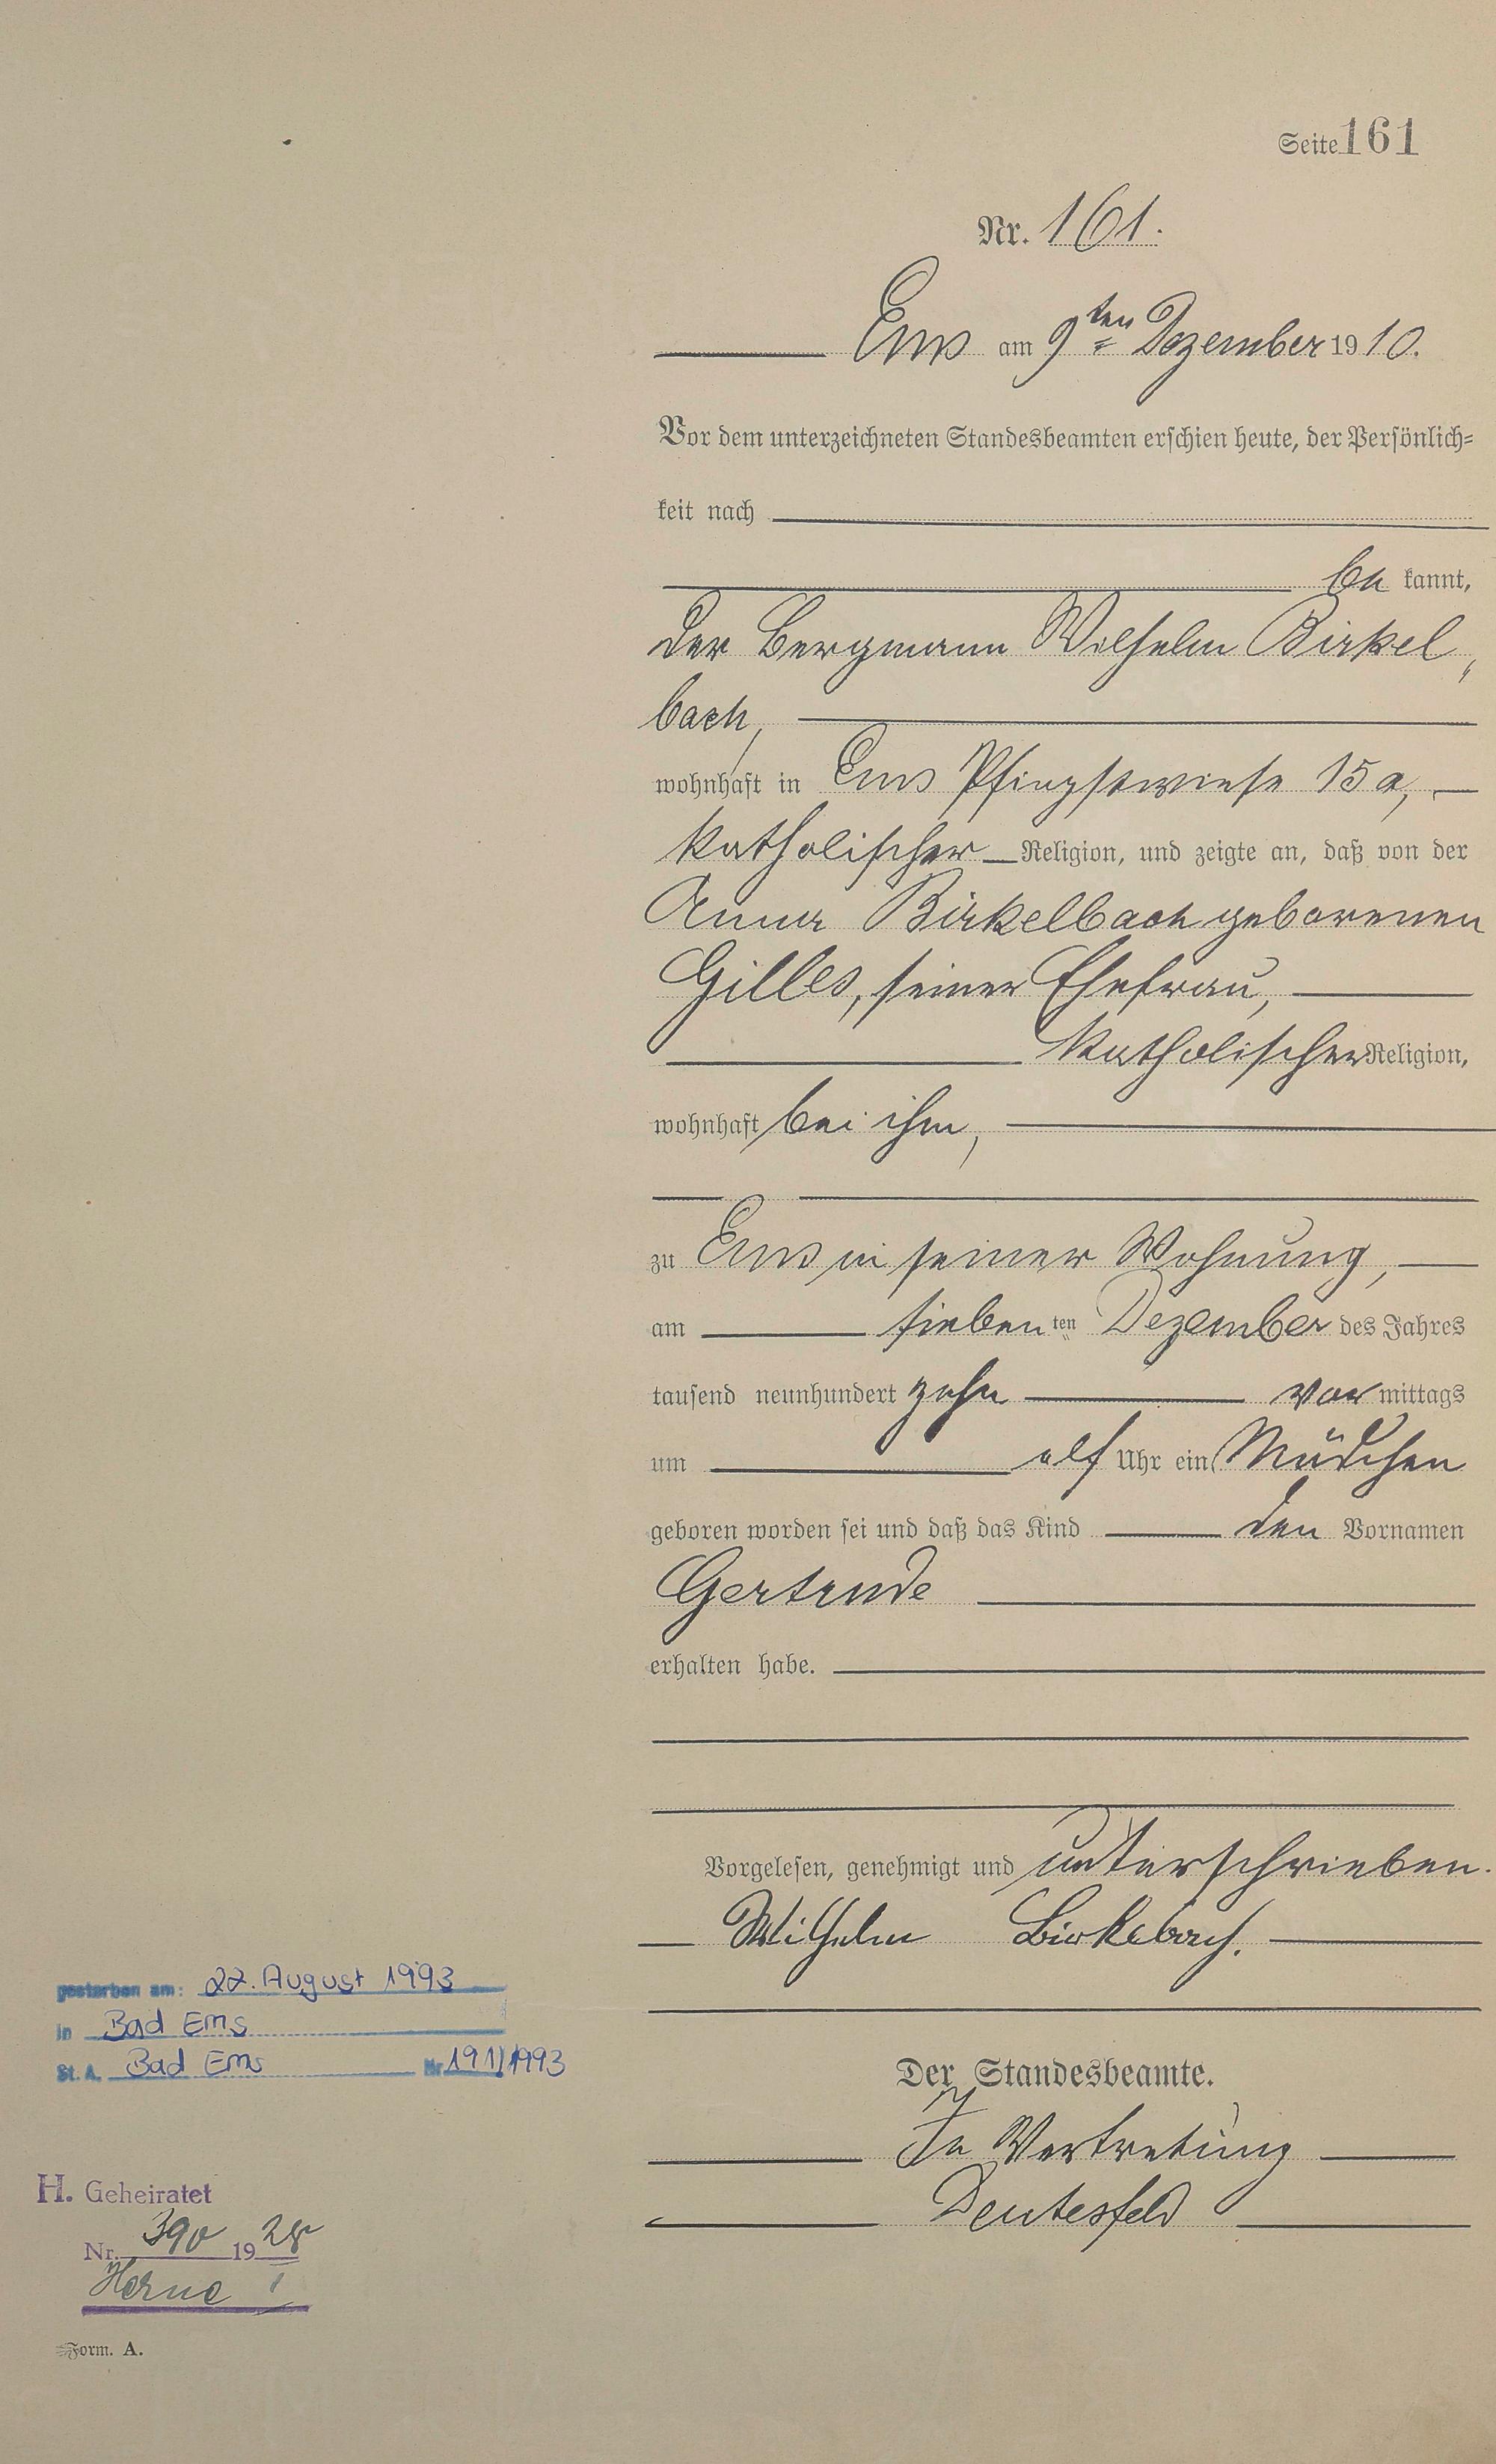 Seite 161
Nr. 161.
Ems am 9ten Dezember 1910.
Vor dem unterzeichneten Standesbeamten erschien heute, der Persönlich=
keit nach
be kannt,
der Bergmann Wilhelm Birkel„
bach,
wohnhaft in Ems Pfingstwiese 15a,
katholischer Religion, und zeigte an, daß von der
Anna Birkelbach geborenen
Gilles, seiner Ehefrau,
katholischer Religion,
wohnhaft bei ihm,
zu Ems in seiner Wohnung,
am sieben ten Dezember des Jahres
tausend neunhundert zehn vor mittags
um elf Uhr ein Mädchen
geboren worden sei und daß das Kind den Vornamen
Gertrude
erhalten habe.
Vorgelesen, genehmigt und unterschrieben.
Wilhelm Birkelbach.
Der Standesbeamte.
In Vertretung
Deutesfeld
gestorben am: 22. August 1993
in Bad Ems
St. A. Bad Ems Nr 191/1993
H. Geheiratet
Nr. 390 1928
Herne I
Form. A.